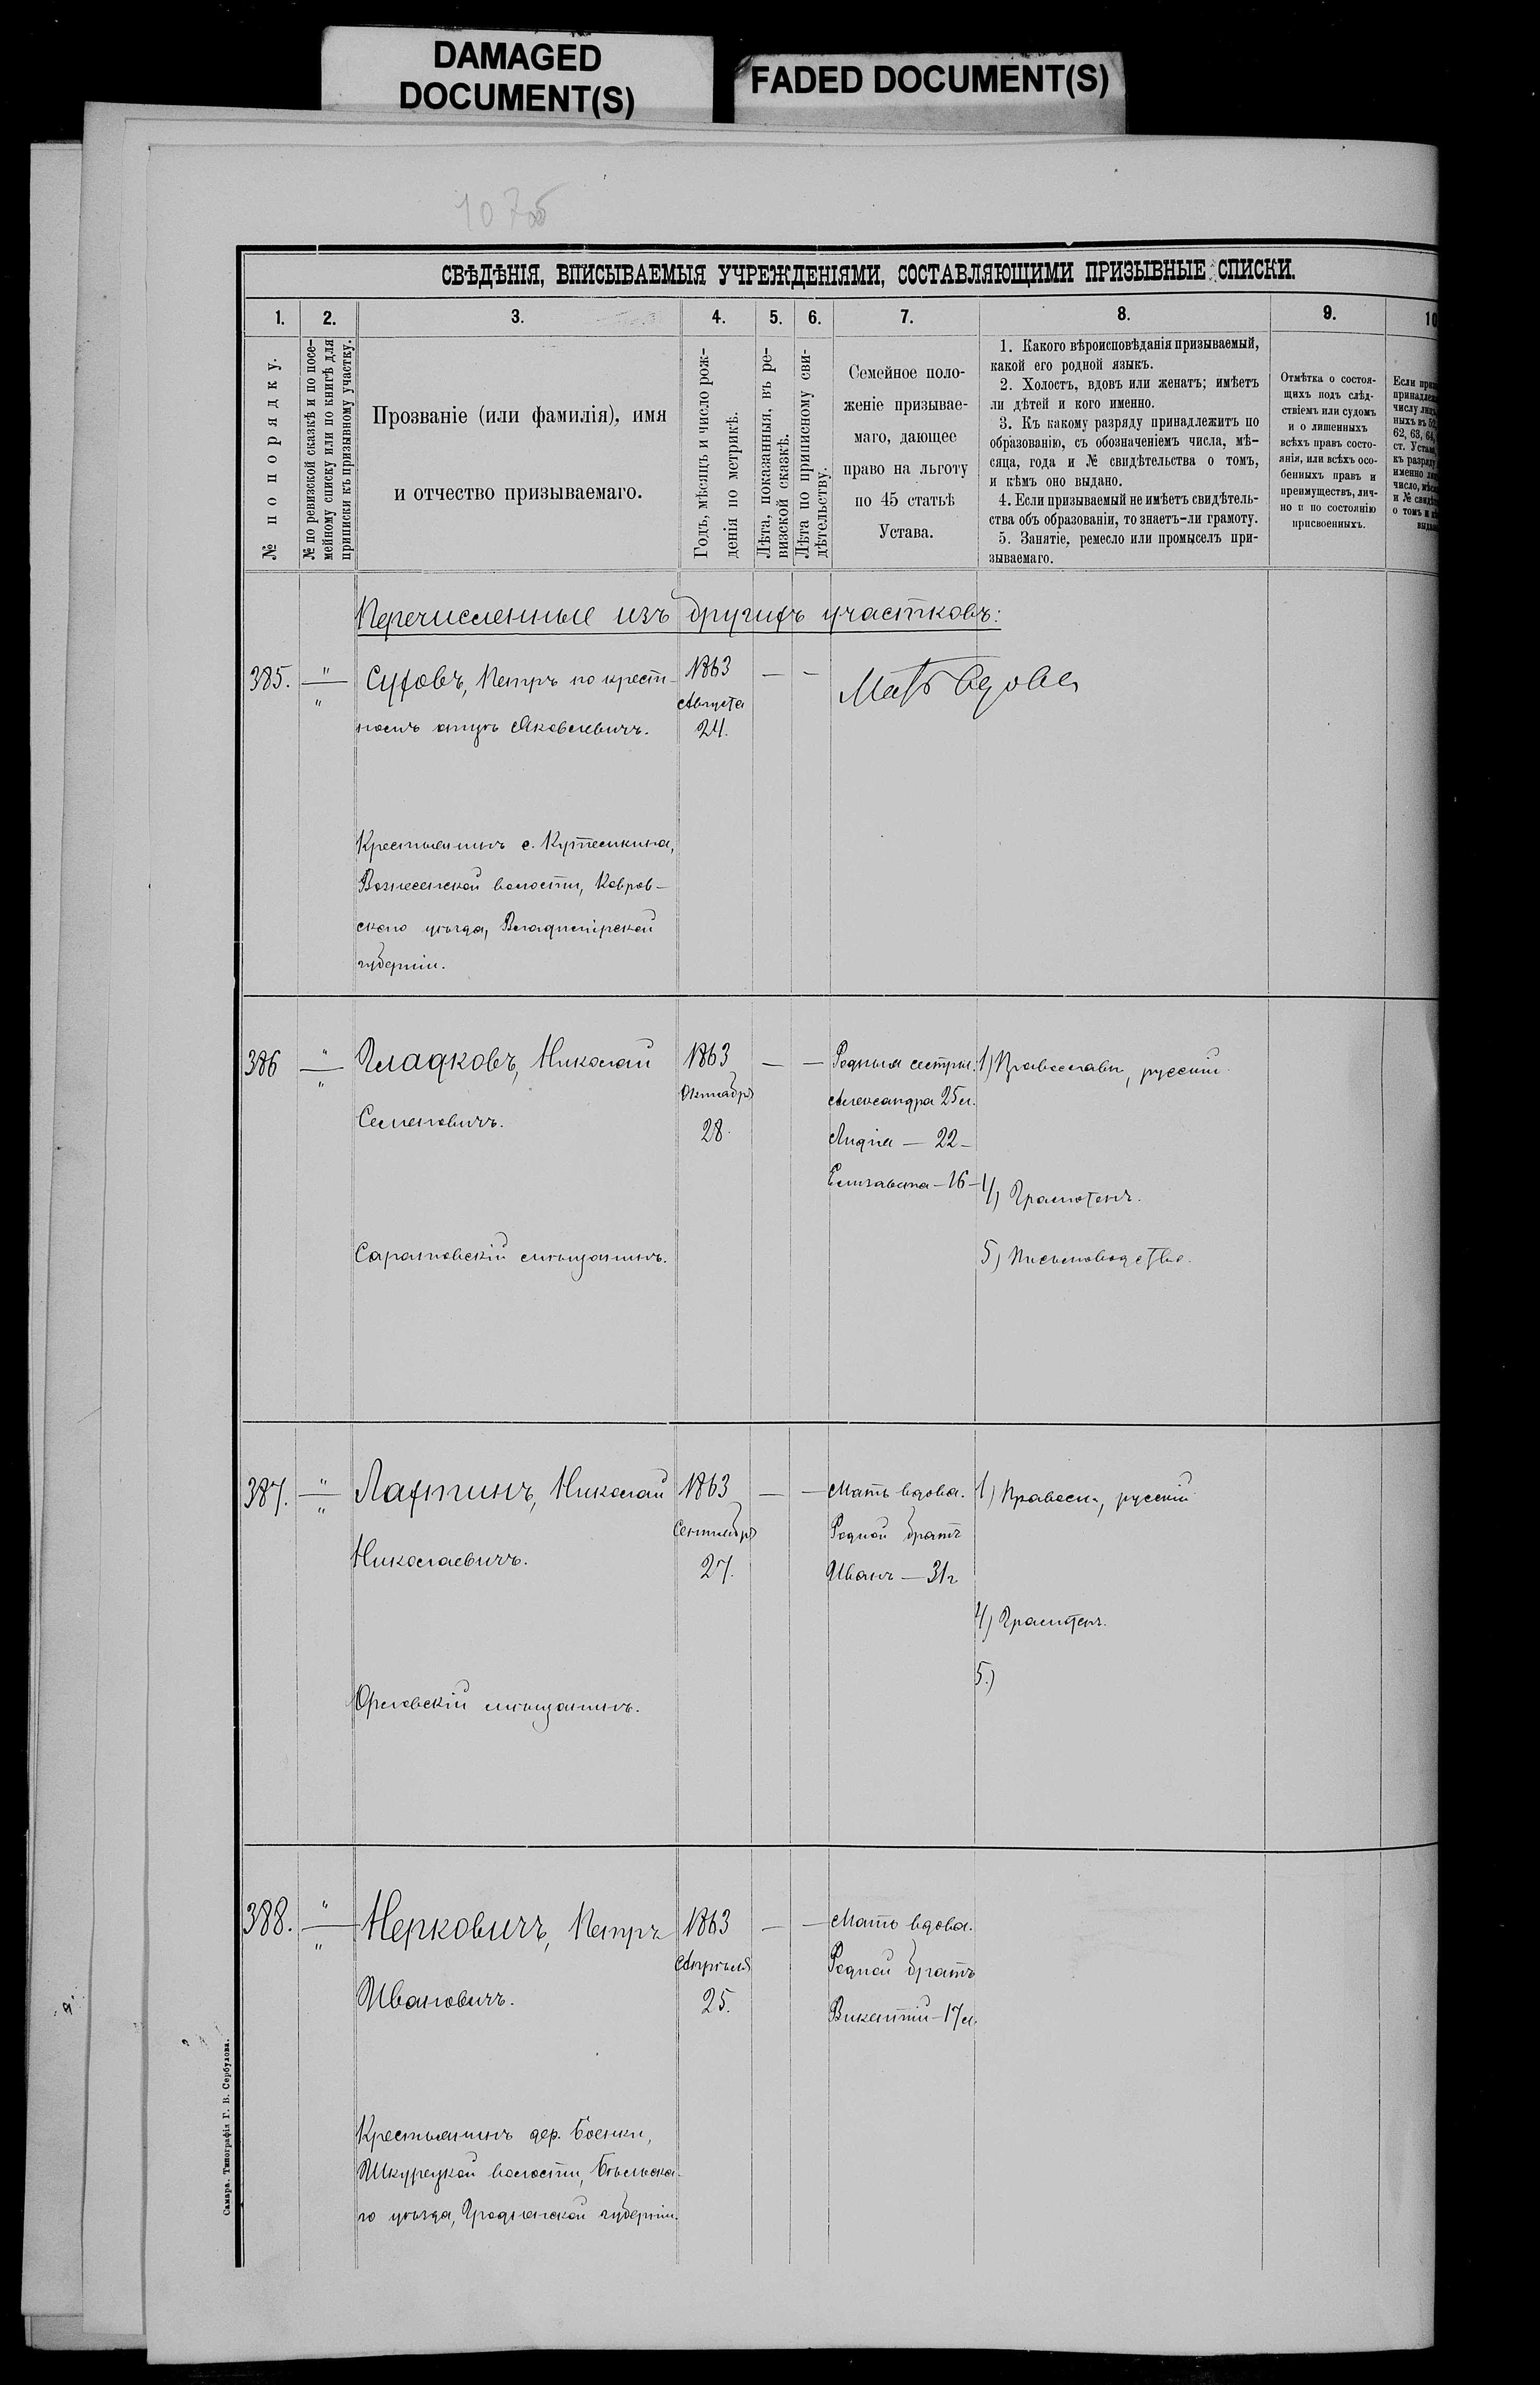 DAMAGED
DOCUMENT(S)
FADED DOCUMENT(S)
СВѢДѢНІЯ, ВПИСЫВАЕМЫЯ УЧРЕЖДЕНІЯМИ, СОСТАВЛЯЮЩИМИ ПРИЗЫВНЫЕ СПИСКИ.
1.
2.
3.
4.
5.
6.
7.
8.
9.
10
№ по порядку.
№ по ревизской сказкѣ и по посе-
мейному списку или по книгѣ для
приписки къ призывному участку.
Прозваніе (или фамилія), имя
и отчество призываемаго.
Годъ, мѣсяцъ и число рож-
денія по метрикѣ.
Лѣта, показанныя, въ ре-
визской сказкѣ.
Лѣта по приписному сви-
дѣтельству.
Семейное поло-
женіе призывае-
маго, дающее
право на льготу
по 45 статьѣ
Устава.
1. Какого вѣроисповѣданія призываемый,
какой его родной языкъ.
2. Холостъ, вдовъ или женатъ; имѣетъ
ли дѣтей и кого именно.
3. Къ какому разряду принадлежитъ по
образованію, съ обозначеніемъ числа, мѣ-
сяца, года и № свидѣтельства о томъ,
и кѣмъ оно выдано.
4. Если призываемый не имѣетъ свидѣтель-
ства объ образованіи, то знаетъ-ли грамоту.
5. Занятіе, ремесло или промыселъ при-
зываемаго.
Отмѣтка о состоя-
щихъ подъ слѣд-
ствіемъ или судомъ
и о лишенныхъ
всѣхъ правъ состо-
янія, или всѣхъ осо-
бенныхъ правъ и
преимуществъ, лич-
но и по состоянію
присвоенныхъ.
Если
числу
62, 63, 64,
ст.
именно
число,
и №
о томъ и
Перечисленные изъ другихъ участковъ:
385.
Суховъ, Петръ по крест-
ному отцу Яковлевичъ.
1863
Августа
24.
Мать вдова
Крестьянинъ с.
Вознесенской волости, Ковров-
скаго уѣзда, Владимірской
губерніи.
386
Гладковъ, Николай
Семеновичъ.
1863
Октября
28.
Родныя сестры:
Александра 25 л.
Лидія — 22 —
Елизавета — 16 —
1) Православн, русскій
4) Грамотенъ.
5) Письмоводство.
Саратовскій мѣщанинъ.
387.
Лахтинъ, Николай
Николаевичъ.
1863
Сентября
27.
Мать вдова.
Родной братъ
Иванъ — 31 г
1) Правосл., русскій
4) Грамотенъ.
5.)
Орловскій мѣщанинъ.
388.
Нерковичъ, Петръ
Ивановичъ.
1863
Апрѣля
25.
Мать вдова.
Родной братъ
Викентій — 17 л.
Крестьянинъ дер. Боенки,
Шкурецкой волости, Бѣльска-
го уѣзда, Гродненской губерніи.
Самара. Типографія Г. В. Сербулова.